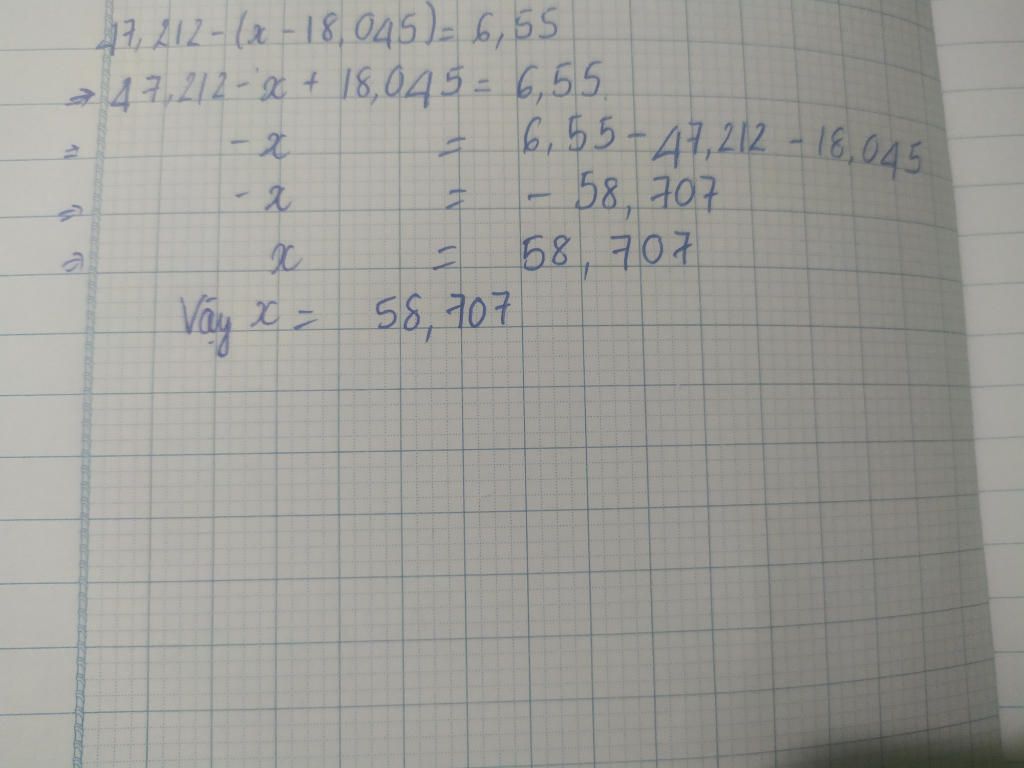 47,212-(x-18,045)=6,55
⇒ 47,212-x+18,045=6,55
⇒ -x = 6,55-47,212-18,045
⇒ -x = -58,707
⇒ x = 58,707
Vậy x = 58,707